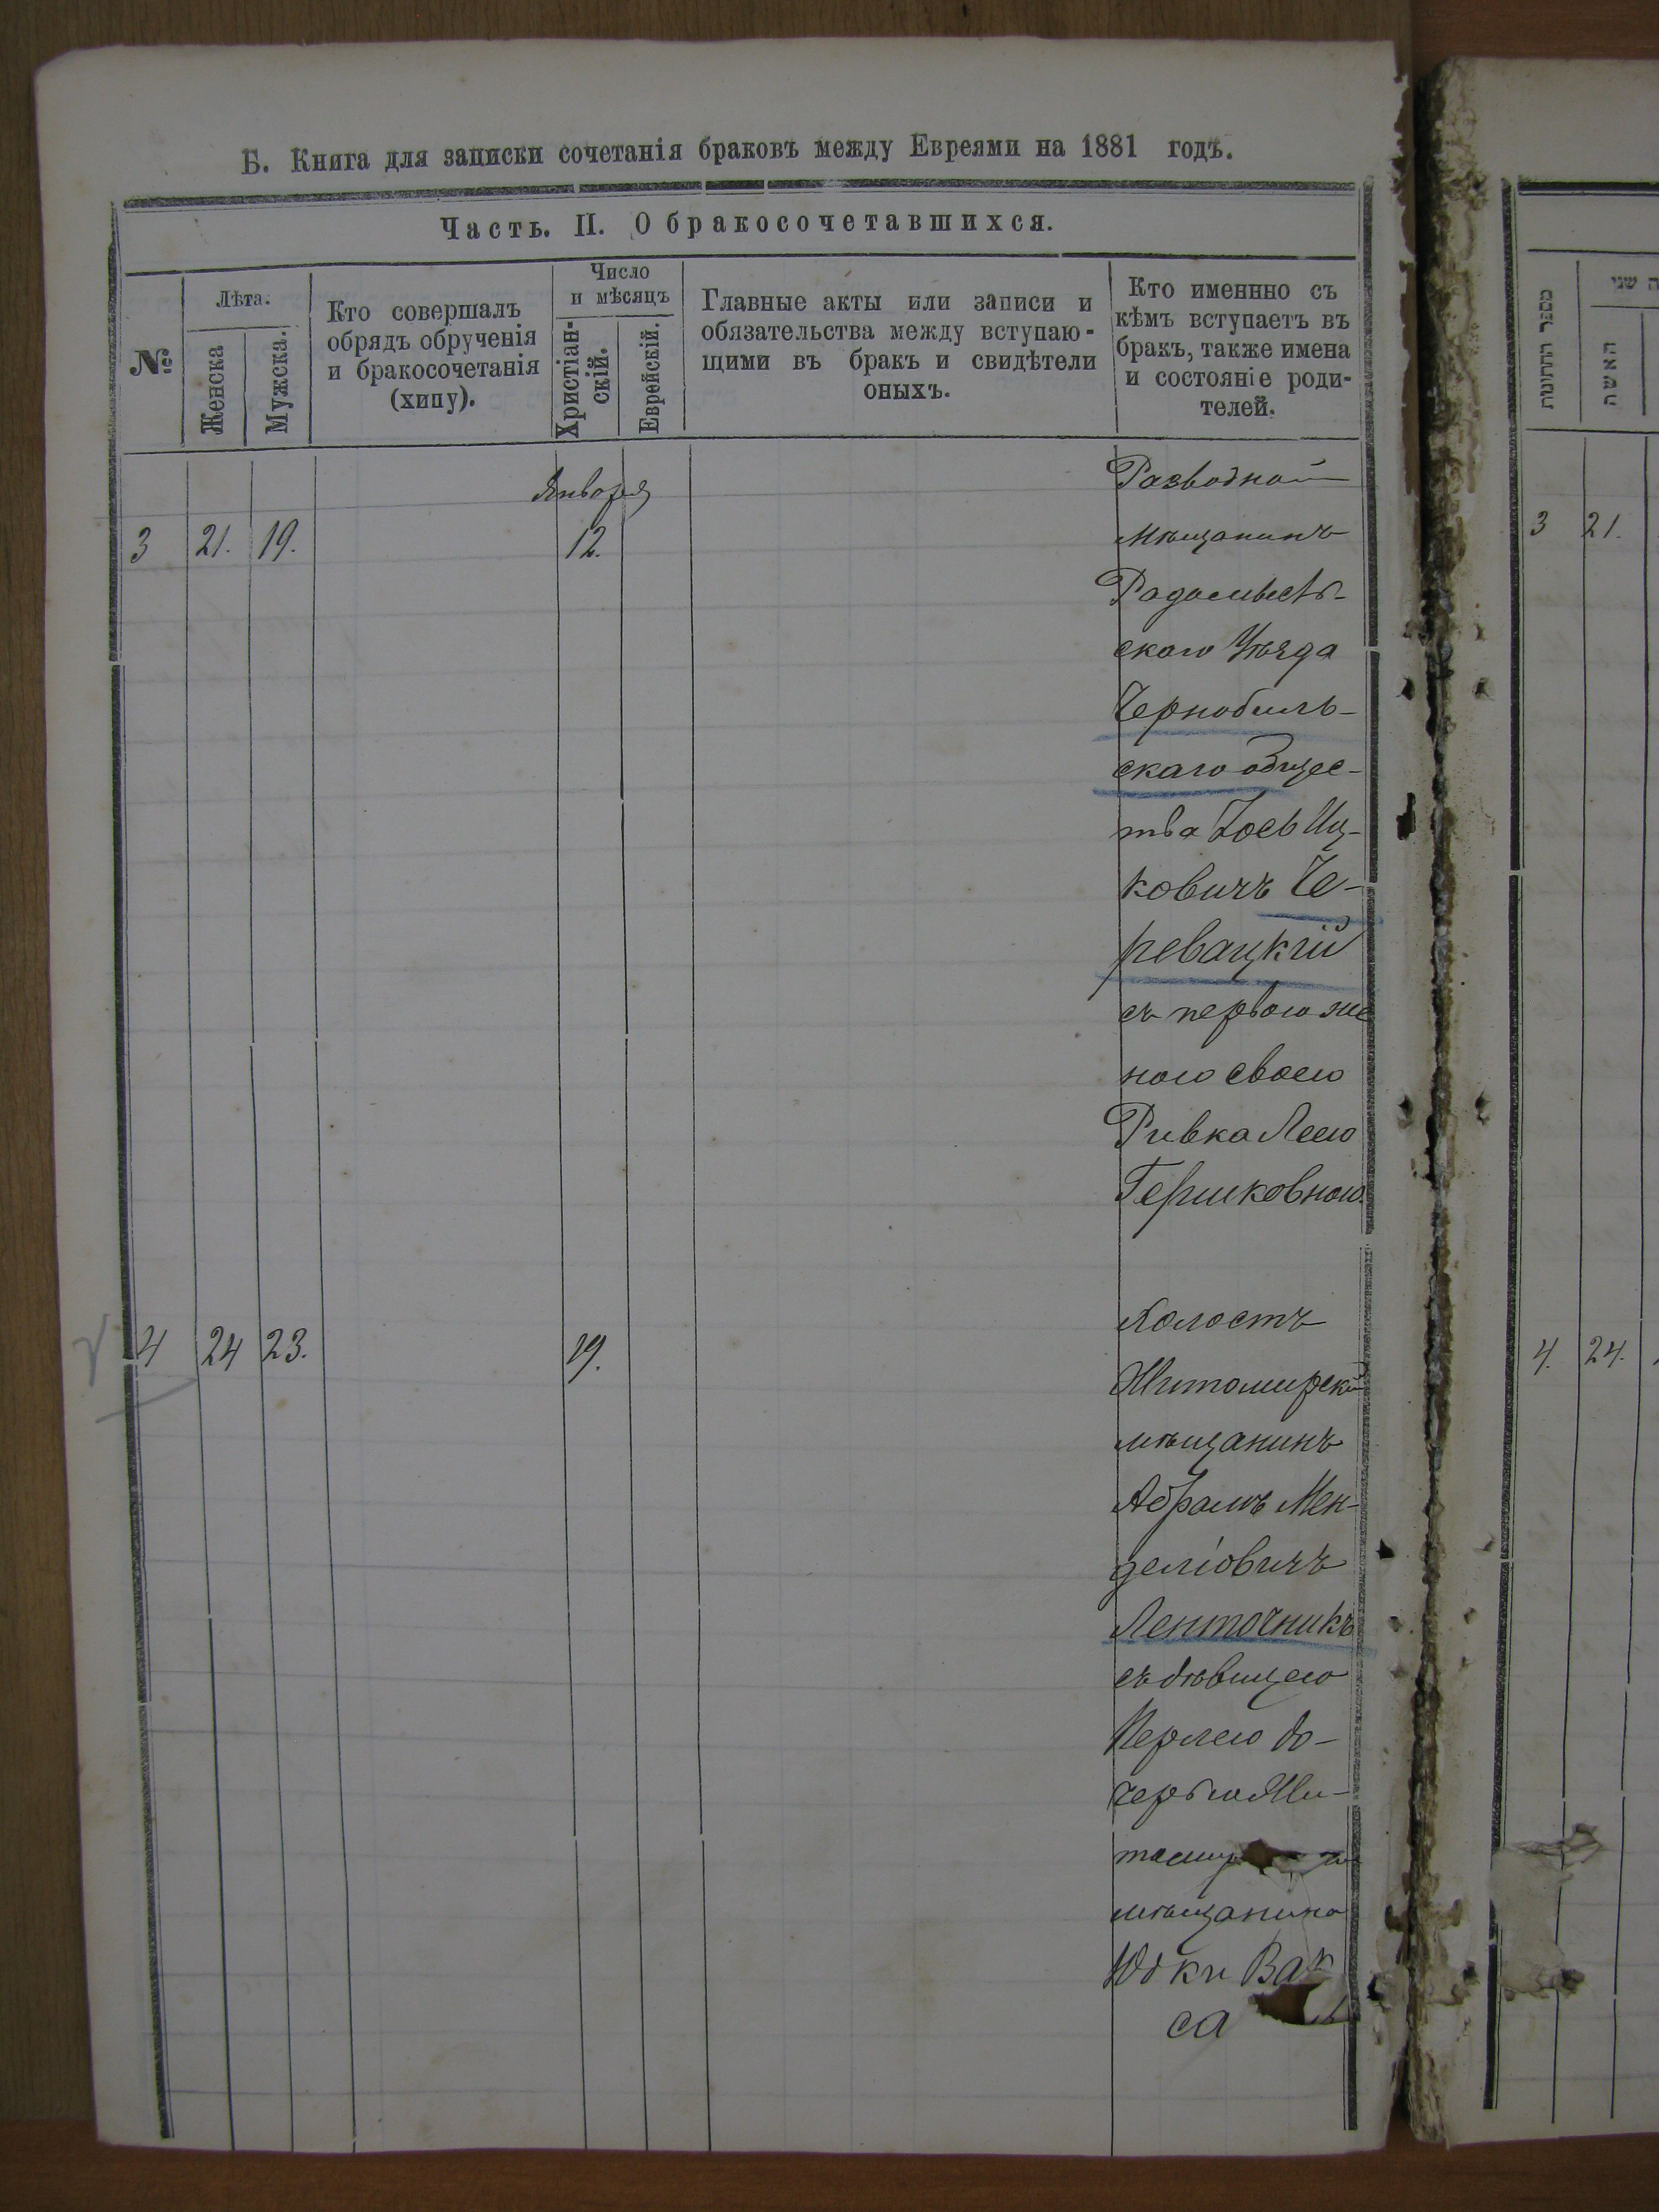 Б. Книга для записки сочетанія браковъ между Евреями на 1881 годъ.
Часть. II. О бракосочетавшихся.
№
Лѣта.
Женска
Мужска.
Кто совершалъ
обрядъ обрученія
и бракосочетанія
(хипу).
Число
и мѣсяцъ
Христіан-
скій.
Еврейскій.
Главные акты или записи и
обязательства между вступаю-
щими въ бракъ и свидѣтели
оныхъ.
Кто именнно съ
кѣмъ вступаетъ въ
бракъ, также имена
и состояніе роди-
телей.
Января
3 21. 19. 12.
Разводной
мѣщанинъ
Радомысль-
скаго Уѣзда
Чернобиль-
скаго общес-
тва Іось Иц-
ковичъ Че-
ревацкій
съ первою же
ною своею
Ривка Леею
Гершковною.
4 24 23. 19.
Холостъ
Житомирскій
мѣщанинъ
Абрамъ Мен-
деліовичъ
Ленточникъ
съ дѣвицею
Перлею до-
черью Жи-
томир
мѣщанина
Юдки Вак
са
מספר החתונות
ה שני
האשה
3 21.
4. 24.